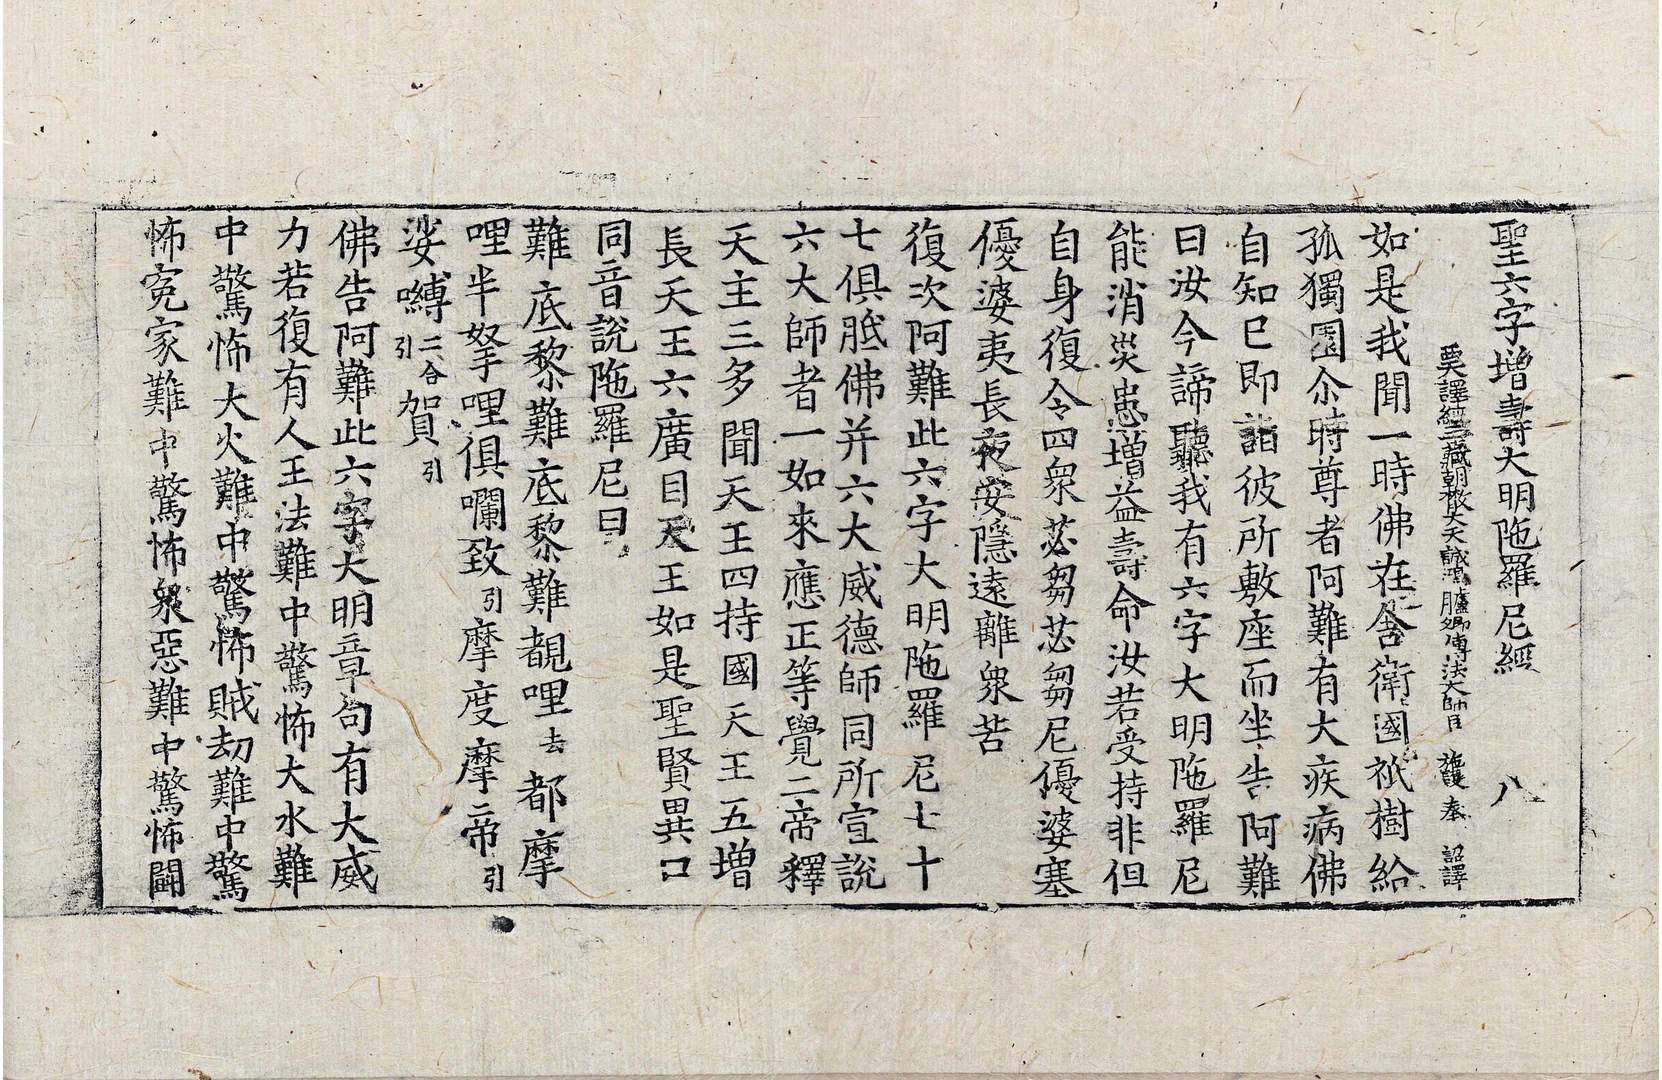 聖六字增壽大明陁羅尼經 八
西天譯經三藏朝散大夫試鴻臚卿傳法大師臣 施護 奉 詔譯
如是我聞一時佛在舍衛國祇樹給
孤獨園尒時尊者阿難有大疾病佛
自知已即詣彼所敷座而坐告阿難
曰汝今諦聽我有六字大明陁羅尼
能消災患增益壽命汝若受持非但
自身復令四衆苾芻苾芻尼優婆塞
優婆夷長夜安隱遠離衆苦
復次阿難此六字大明陁羅尼七十
七俱胝佛并六大威德師同所宣說
六大師者一如來應正等覺二帝釋
天主三多聞天王四持國天王五增
長天王六廣目天王如是聖賢異口
同音說陁羅尼曰
難底黎難底黎難覩哩去都摩
哩半拏哩俱嚂致引摩度摩帝引
娑嚩二合引賀引
佛告阿難此六字大明章句有大威
力若復有人王法難中驚怖大水難
中驚怖大火難中驚怖賊劫難中驚
怖寃家難中驚怖衆惡難中驚怖鬪